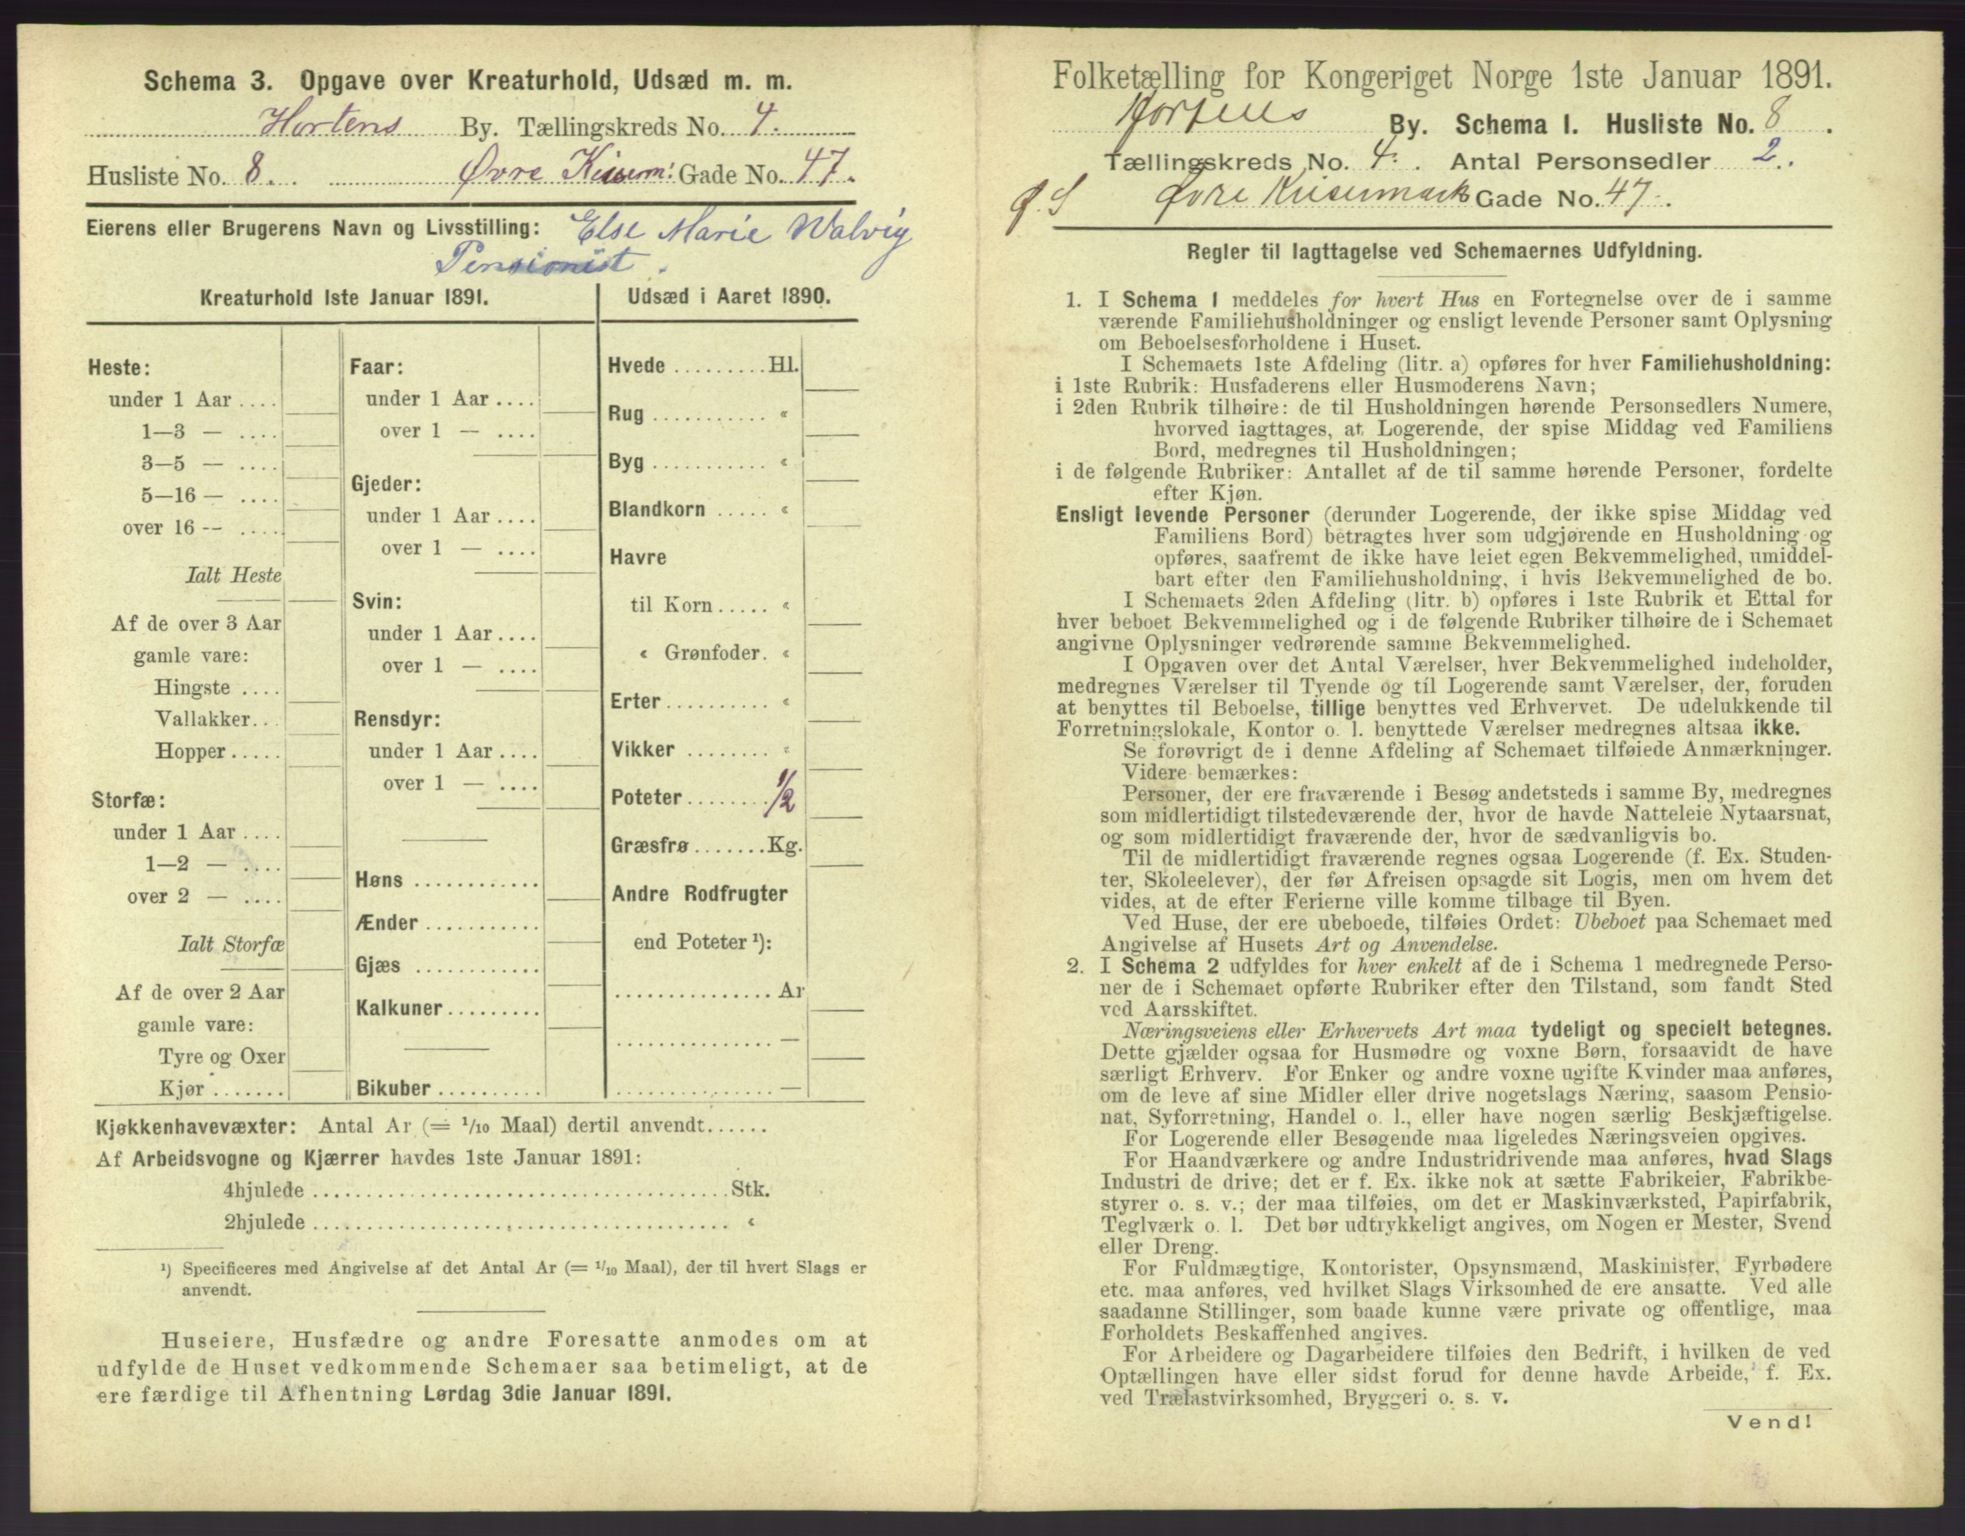 Schema 3. Opgave over Kreaturhold, Udsæd m. m.
Hortens By. Tællingskreds No. 4.
Husliste No. 8. Øvre Gade No. 47.
Eierens eller Brugerens Navn og Livsstilling: Else Marie Walvig
Pensionist.
Kreaturhold 1ste Januar 1891.
Heste:
under 1 Aar ....
1—3 — ....
3—5 — ....
5—16 — ....
over 16 -- ....
Ialt Heste
Af de over 3 Aar
gamle vare:
Hingste ....
Vallakker...
Hopper .....
Storfæ:
under 1 Aar ....
1—2 — ....
over 2 — ....
Ialt Storfæ
Af de over 2 Aar
gamle vare:
Tyre og Oxer
Kjør .......
Faar:
under 1 Aar ....
over 1 — ....
Gjeder:
under 1 Aar ....
over 1 — ....
Svin:
under 1 Aar ....
over 1 — ....
Rensdyr:
under 1 Aar ....
over 1 — ....
Høns ............
Ænder ...........
Gjæs ............
Kalkuner.........
Bikuber ..........
Udsæd i Aaret 1890.
Hvede .........Hl.
Rug ........... «
Byg ........... «
Blandkorn ..... «
Havre
til Korn ..... «
« Grønfoder. «
Erter.......... «
Vikker ........ «
Poteter........ 1/2
Græsfrø .......Kg.
Andre Rodfrugter
end Poteter ¹):
............... Ar
............... —
............... —
Kjøkkenhavevæxter: Antal Ar (= 1/10 Maal) dertil anvendt......
Af Arbeidsvogne og Kjærrer havdes 1ste Januar 1891:
4hjulede ........................................Stk.
2hjulede ........................................ «
¹) Specificeres med Angivelse af det Antal Ar (= 1/10 Maal), der til hvert Slags er
anvendt.
Huseiere, Husfædre og andre Foresatte anmodes om at
udfylde de Huset vedkommende Schemaer saa betimeligt, at de
ere færdige til Afhentning Lørdag 3die Januar 1891.
Folketælling for Kongeriget Norge 1ste Januar 1891.
Hortens By. Schema I. Husliste No. 8.
Tællingskreds No. 4. Antal Personsedler 2.
Øvre Gade No. 47.
Regler til Iagttagelse ved Schemaernes Udfyldning.
1. I Schema 1 meddeles for hvert Hus en Fortegnelse over de i samme
værende Familiehusholdninger og ensligt levende Personer samt Oplysning
om Beboelsesforholdene i Huset.
I Schemaets 1ste Afdeling (litr. a) opføres for hver Familiehusholdning:
i 1ste Rubrik: Husfaderens eller Husmoderens Navn;
i 2den Rubrik tilhøire: de til Husholdningen hørende Personsedlers Numere,
hvorved iagttages, at Logerende, der spise Middag ved Familiens
Bord, medregnes til Husholdningen;
i de følgende Rubriker: Antallet af de til samme hørende Personer, fordelte
efter Kjøn.
Ensligt levende Personer (derunder Logerende, der ikke spise Middag ved
Familiens Bord) betragtes hver som udgjørende en Husholdning og
opføres, saafremt de ikke have leiet egen Bekvemmelighed, umiddel-
bart efter den Familiehusholdning, i hvis Bekvemmelighed de bo.
I Schemaets 2den Afdeling (litr. b) opføres i 1ste Rubrik et Ettal for
hver beboet Bekvemmelighed og i de følgende Rubriker tilhøire de i Schemaet
angivne Oplysninger vedrørende samme Bekvemmelighed.
I Opgaven over det Antal Værelser, hver Bekvemmelighed indeholder,
medregnes Værelser til Tyende og til Logerende samt Værelser, der, foruden
at benyttes til Beboelse, tillige benyttes ved Erhvervet. De udelukkende til
Forretningslokale, Kontor o. l. benyttede Værelser medregnes altsaa ikke.
Se forøvrigt de i denne Afdeling af Schemaet tilføiede Anmærkninger.
Videre bemærkes:
Personer, der ere fraværende i Besøg andetsteds i samme By, medregnes
som midlertidigt tilstedeværende der, hvor de havde Natteleie Nytaarsnat,
og som midlertidigt fraværende der, hvor de sædvanligvis bo.
Til de midlertidigt fraværende regnes ogsaa Logerende (f. Ex. Studen-
ter, Skoleelever), der før Afreisen opsagde sit Logis, men om hvem det
vides, at de efter Ferierne ville komme tilbage til Byen.
Ved Huse, der ere ubeboede, tilføies Ordet: Ubeboet paa Schemaet med
Angivelse af Husets Art og Anvendelse.
2. I Schema 2 udfyldes for hver enkelt af de i Schema 1 medregnede Perso-
ner de i Schemaet opførte Rubriker efter den Tilstand, som fandt Sted
ved Aarsskiftet.
Næringsveiens eller Erhvervets Art maa tydeligt og specielt betegnes.
Dette gjælder ogsaa for Husmødre og voxne Børn, forsaavidt de have
særligt Erhverv. For Enker og andre voxne ugifte Kvinder maa anføres,
om de leve af sine Midler eller drive nogetslags Næring, saasom Pensio-
nat, Syforretning, Handel o. l., eller have nogen særlig Beskjæftigelse.
For Logerende eller Besøgende maa ligeledes Næringsveien opgives.
For Haandværkere og andre Industridrivende maa anføres, hvad Slags
Industri de drive; det er f. Ex. ikke nok at sætte Fabrikeier, Fabrikbe-
styrer o. s. v.; der maa tilføies, om det er Maskinværksted, Papirfabrik,
Teglværk o. l. Det bør udtrykkeligt angives, om Nogen er Mester, Svend
eller Dreng.
For Fuldmægtige, Kontorister, Opsynsmænd, Maskinister, Fyrbødere
etc. maa anføres, ved hvilket Slags Virksomhed de ere ansatte. Ved alle
saadanne Stillinger, som baade kunne være private og offentlige, maa
Forholdets Beskaffenhed angives.
For Arbeidere og Dagarbeidere tilføies den Bedrift, i hvilken de ved
Optællingen have eller sidst forud for denne havde Arbeide, f. Ex.
ved Trælastvirksomhed, Bryggeri o. s. v.
Vend!